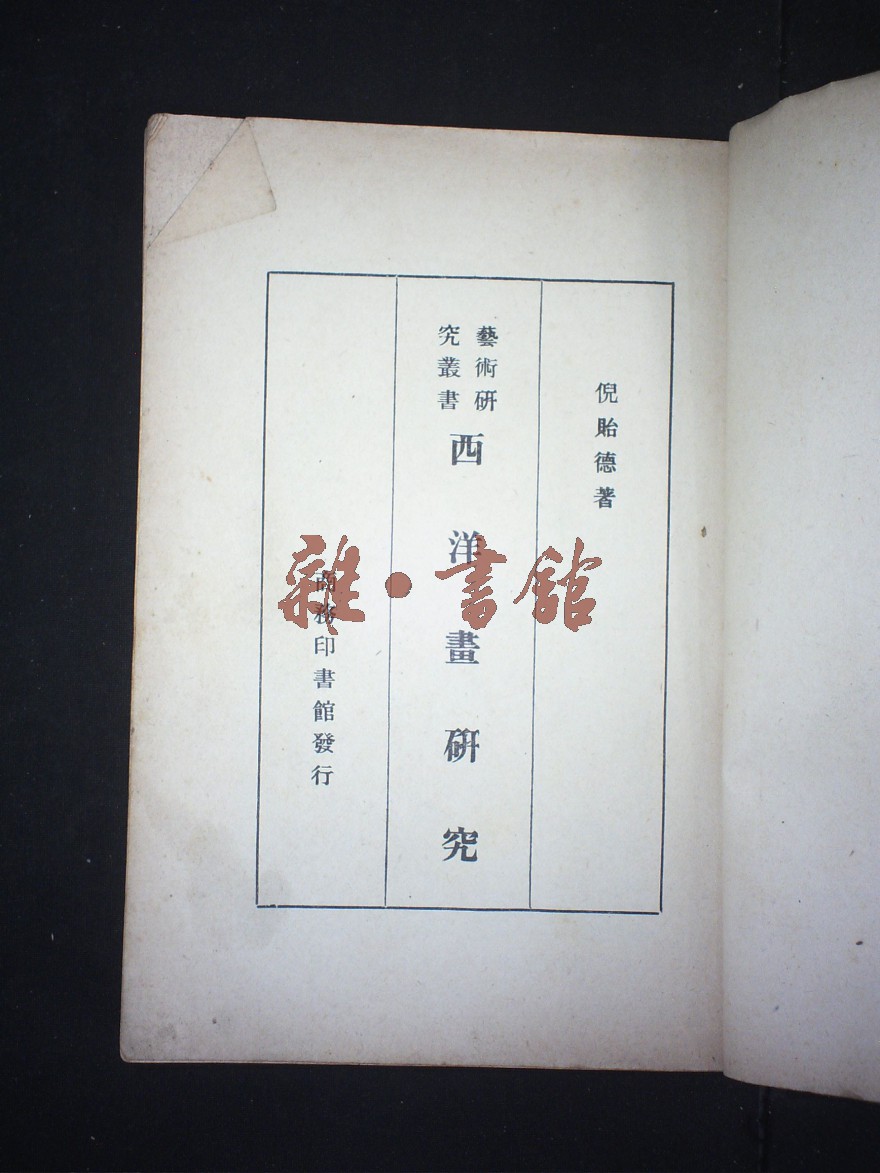 倪貽德著
藝術研
究叢書
西洋畫研究
商務印書館發行
雜·書館